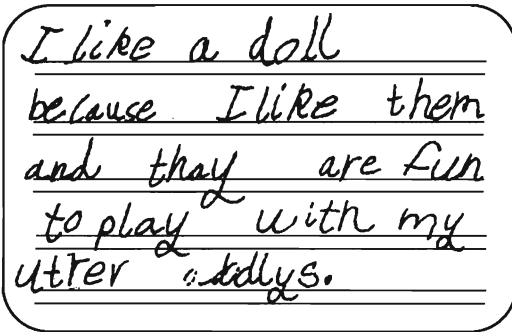 I like a doll
because I like them
and thay are fun
to play with my
utter